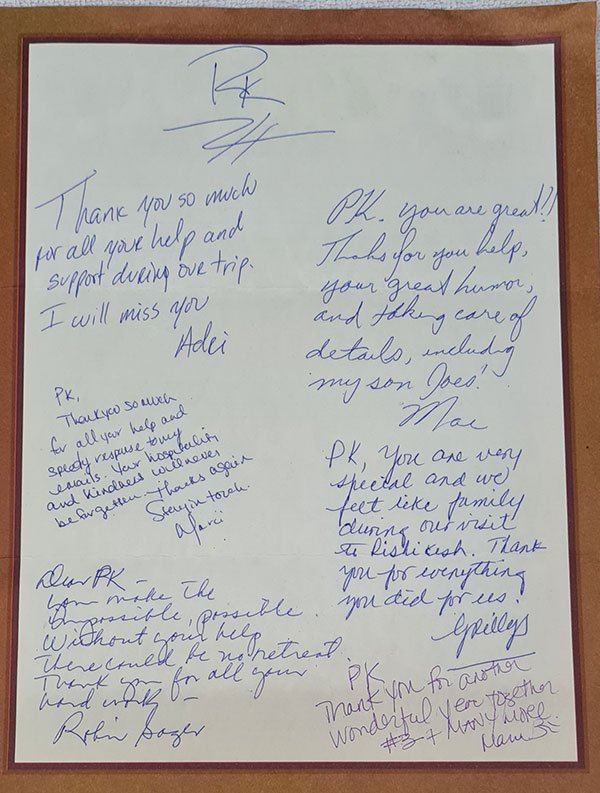 PK
Thank you so much
for all your help and
support during our trip.
I will miss you
PK. you are great!!
Thaks for you help,
your great humor,
and taking care of
details, including
my son Joes!
Mac
PK,
Thank you so much
for all your help and
speedy response to my
emails. Your hospitality
and kindness will never
be forgotten. Thanks again
Stay in touch.
PK, You are very
special and we
felt like family
during our visit
to Rishikesh. Thank
you for everything
you did for us.
Dear PK –
you make the
impossible, possible.
Without your help
there could be no retreat.
Thank you for all your
hard work –
Robin
PK
Thank you for another
wonderful year together
#3 + MANY MORE